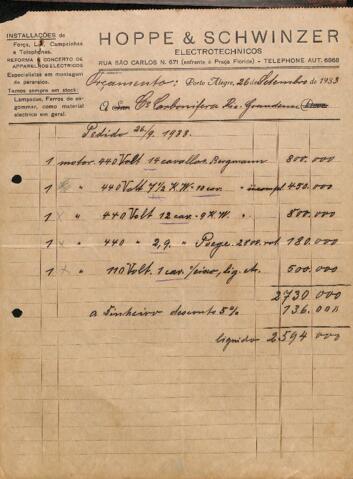 INSTALLAÇÕES de
Força, Luz, Campainhas
e Telephones.
REFORMA e CONCERTO DE
APPARELHOS ELECTRICOS
Especialistas em montagem
de pararaios.
Temos sempre em stock:
Lampadas, Ferros de en-
gommar, como material
electrico em geral.
HOPPE & SCHWINZER
ELECTROTECHNICOS
RUA SÃO CARLOS N. 671 (enfrente a Praça Florida) - TELEPHONE AUT. 6968
Orçamento: Porto Alegre, 26 de Setembro de 1933
A Cia Carbonifera Rio Grandense
Pedido 26/9. 1933.
1 motor 440 Volt 14 cavallos Bergmann 800.000
1 " 440 Volt 7½ K.W. 10 cav. " incompl 450.000
1 " 440 Volt 12 cav. 9 K.W. " 800.000
1 " 440 " 2,9. " Poege 2800 rot 180.000
1 " 110 Volt. 1 cav. 500.000
2730 000
a dinheiro desconto 5% 136.000
liquido 2.594 000